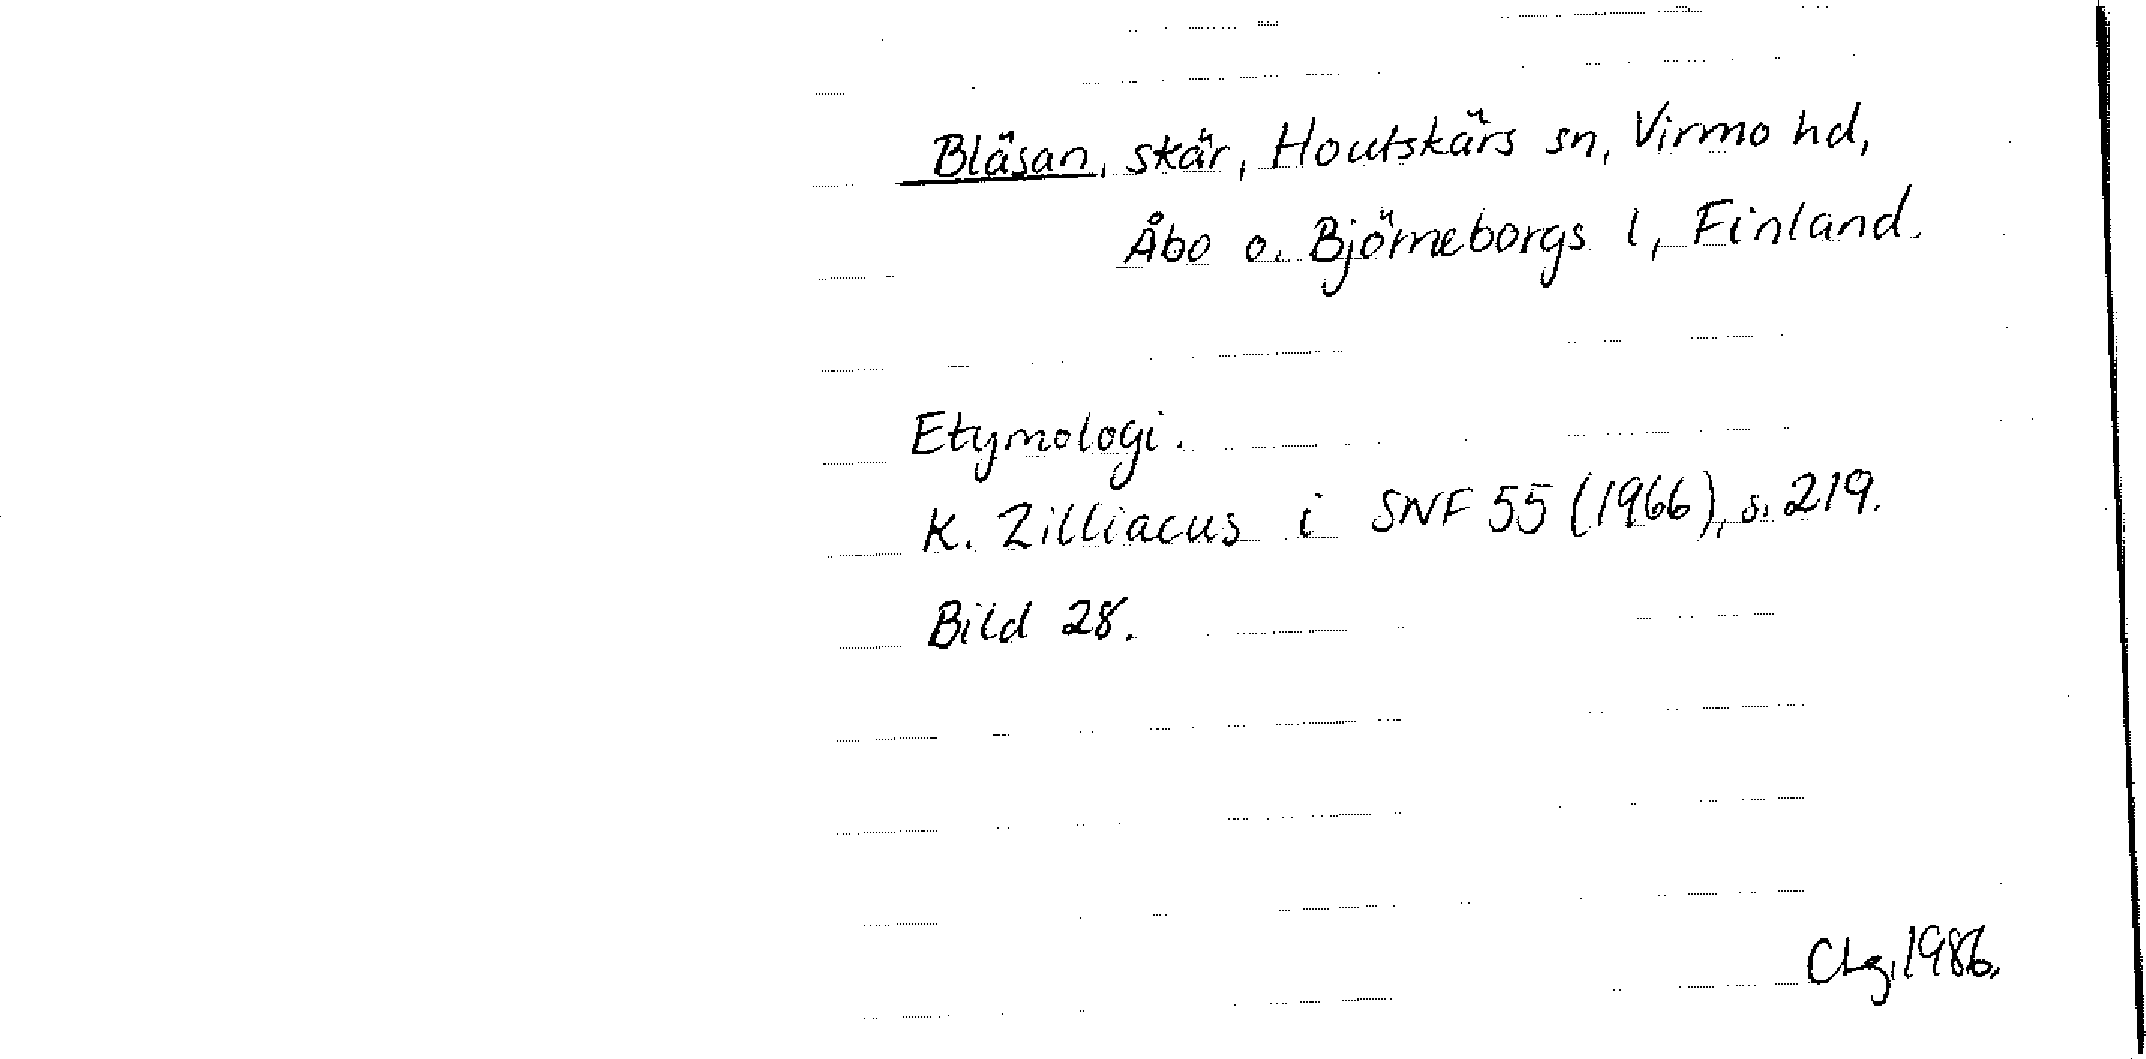 Bläsan, skär, Houtskärs sn, Virmo hd,
Åbo o. Björneborgs l, Finland.
Etymologi.
K. Zilliacus i SNF 55 (1966), s. 219.
Bild 28.
1986.